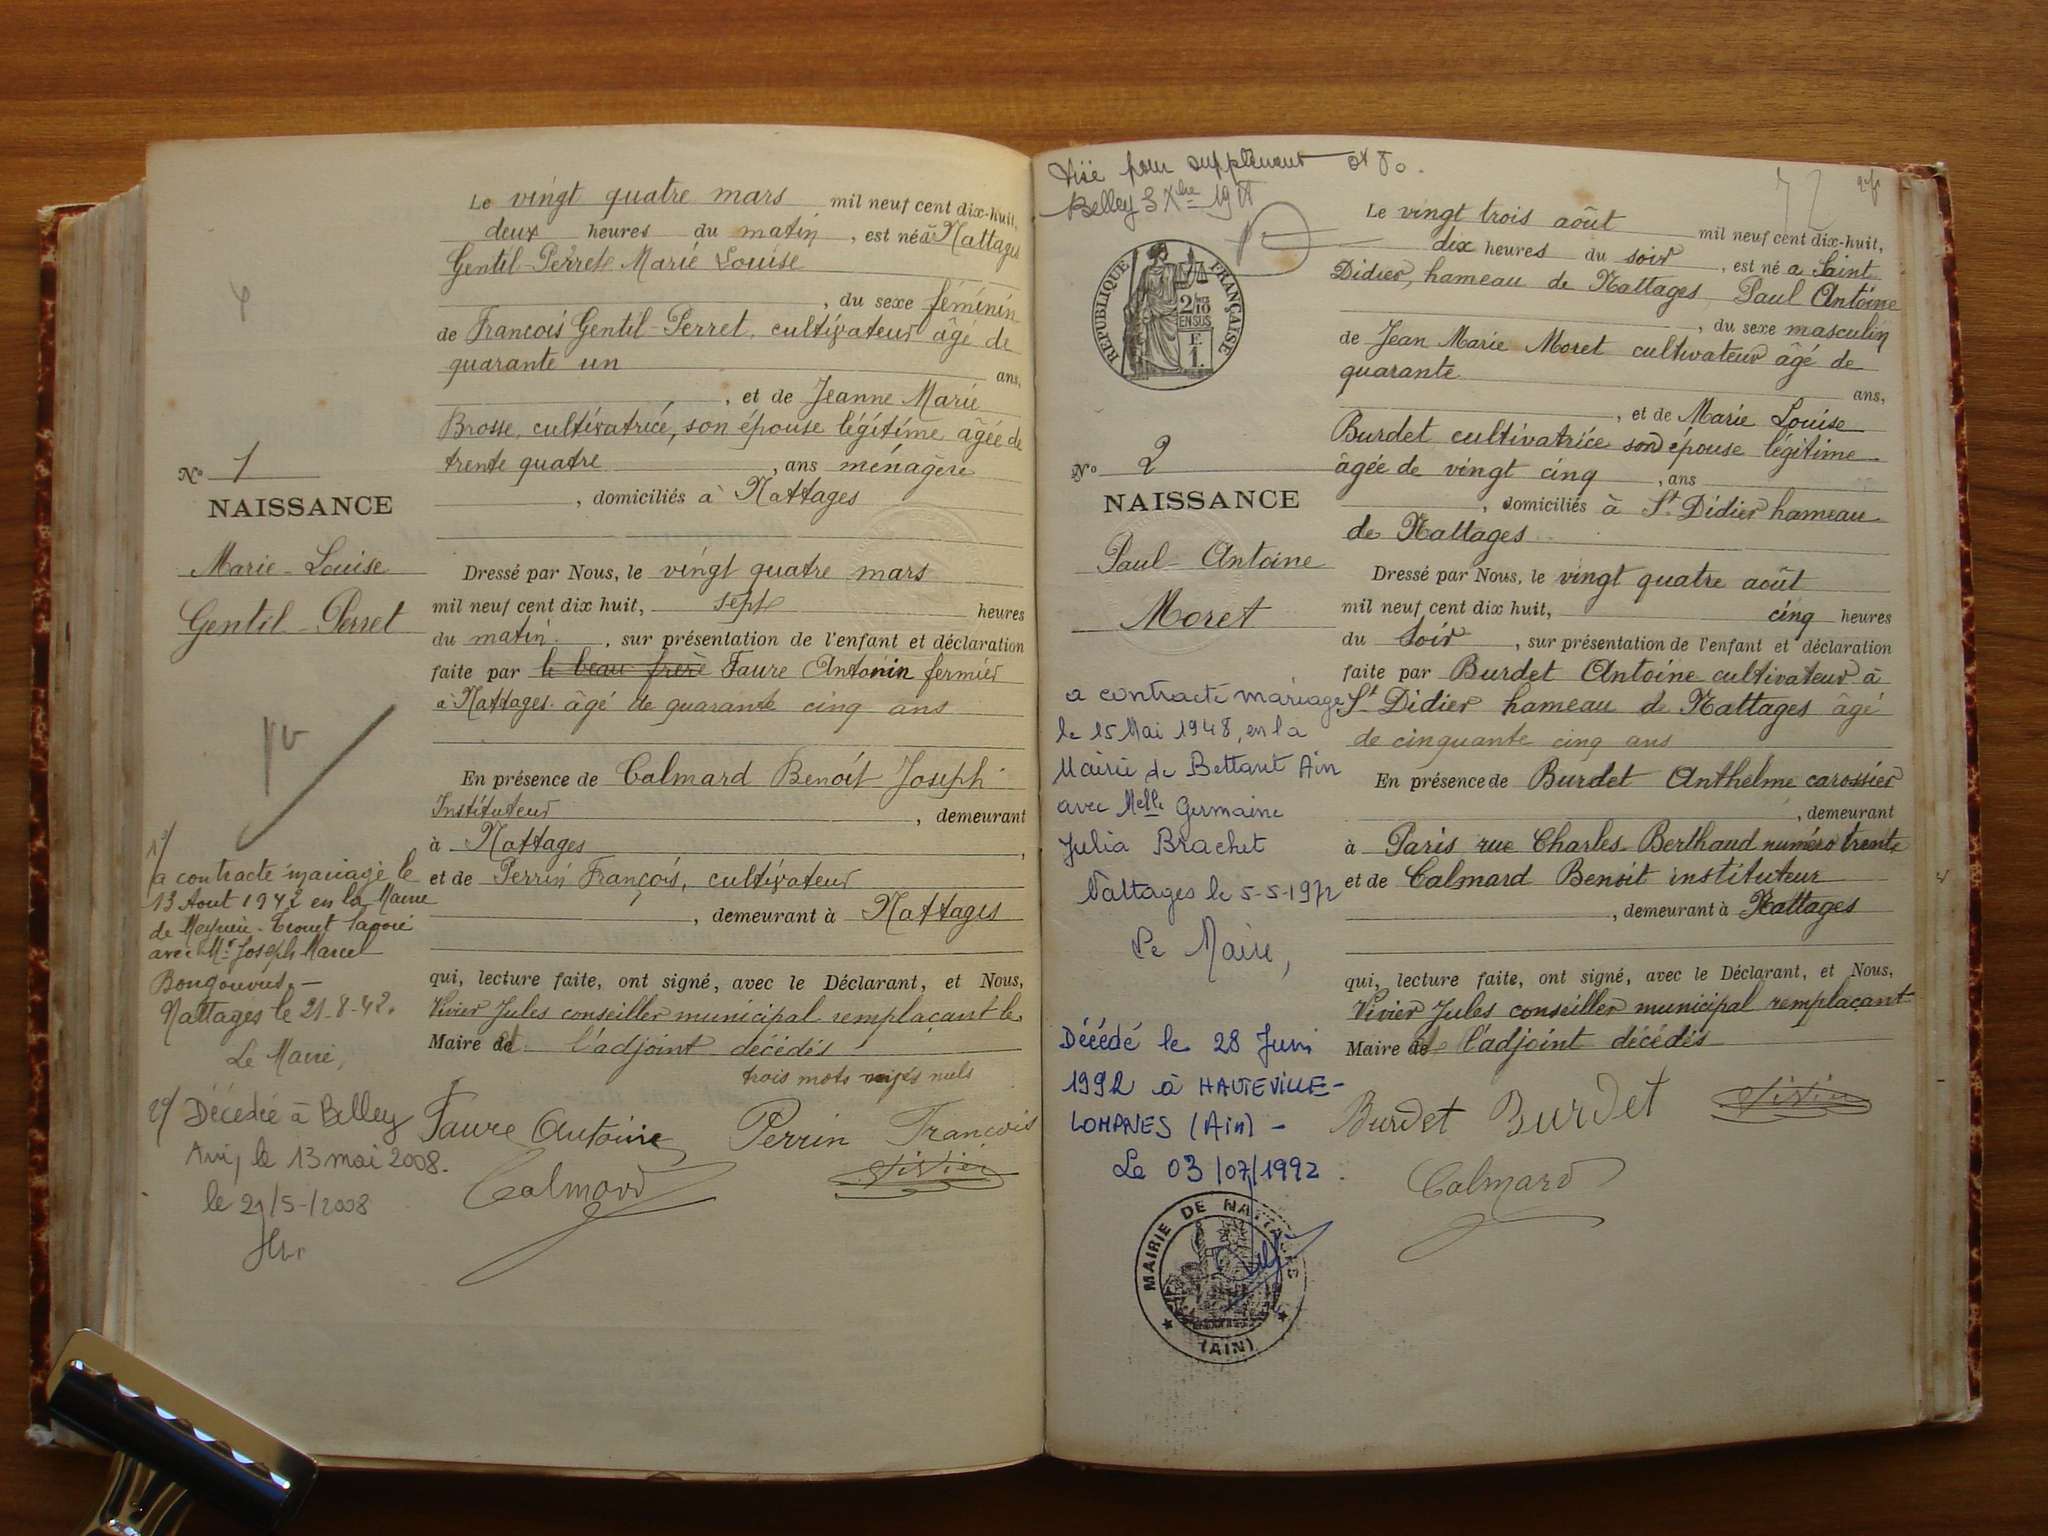 Le vingt quatre mars mil neuf cent dix-huit,
deux heures du matin, est né à Nattages
Gentil-Perret Marie Louise
, du sexe féminin
de François Gentil-Perret, cultivateur âgé de
quarante un ans,
, et de Jeanne Marie
Brosse, cultivatrice, son épouse légitime âgée de
trente quatre, ans ménagère
, domiciliés à Nattages
Nº 1
NAISSANCE
Marie-Louise
Gentil-Perret
Dressé par Nous, le vingt quatre mars
mil neuf cent dix huit, sept heures
du matin, sur présentation de l'enfant et déclaration
faite par le beau frère Faure Antonin fermier
à Nattages âgé de quarante cinq ans
En présence de Calmard Benoit Joseph
Instituteur, demeurant
à Nattages,
et de Perrin François, cultivateur
, demeurant à Nattages
qui, lecture faite, ont signé, avec le Déclarant, et Nous,
Vivier Jules conseiller municipal remplaçant le
Maire et l'adjoint décédés
trois mots rayés nuls
Faure Antoine Perrin François
Calmard Vivier
1º/
a contracté mariage le
13 Aout 1942 en la Mairie
de Meyrieu-Trouet Savoie
avec Mr Joseph Marcel
Nattages le 21-8-42.
Le Maire,
2º/ Décédée à Belley
Ain, le 13 mai 2008.
le 21/5/2008
Visé pour supplément
Belley 3 Xbre
72
RÉPUBLIQUE FRANÇAISE
2/10
EN SUS
F.
1.
Le vingt trois août mil neuf cent dix-huit,
dix heures du soir, est né a Saint
Didier, hameau de Nattages, Paul Antoine
, du sexe masculin
de Jean Marie Moret cultivateur âgé de
quarante ans,
, et de Marie Louise
Burdet cultivatrice son épouse légitime
âgée de vingt cinq, ans
, domiciliés à St Didier hameau
de Nattages
Nº 2
NAISSANCE
Paul-Antoine
Moret
Dressé par Nous, le vingt quatre août
mil neuf cent dix huit, cinq heures
du soir, sur présentation de l'enfant et déclaration
faite par Burdet Antoine cultivateur à
St Didier hameau de Nattages âgé
de cinquante cinq ans
En présence de Burdet Anthelme carossier
, demeurant
à Paris rue Charles Berthaud numéro trente
et de Calmard Benoit instituteur
, demeurant à Nattages
qui, lecture faite, ont signé, avec le Déclarant, et Nous,
Vivier Jules conseiller municipal remplaçant
Maire et l'adjoint décédés
Burdet Burdet Vivier
Calmard
a contracté mariage
le 15 Mai 1948, en la
Mairie de Bettant Ain
avec Melle Germaine
Julia Brachet
Nattages le 5-5-1972
Le Maire,
Décédé le 28 Juin
1992 à HAUTEVILLE-
LOMPNES (Ain) -
Le 03/07/1992.
MAIRIE DE NATTAGES
(AIN)